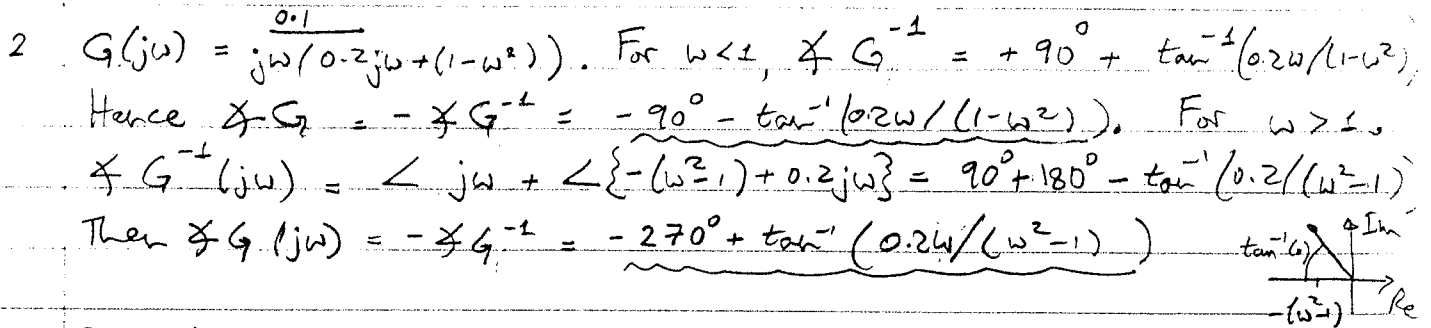 2 G(jω) = 0.1 / jω(0.2jω+(1-ω²)). For ω<1, ∡ G⁻¹ = +90° + tan⁻¹(0.2ω/(1-ω²)
Hence ∡G = -∡G⁻¹ = -90° - tan⁻¹(0.2ω/(1-ω²)). For ω>1,
∡ G⁻¹(jω) = ∠ jω + ∠{-(ω²-1)+0.2jω} = 90°+180° - tan⁻¹(0.2/(ω²-1)
Then ∡G(jω) = -∡G⁻¹ = -270° + tan⁻¹(0.2ω/(ω²-1))
Im
tan⁻¹( )
-(ω²-1) Re